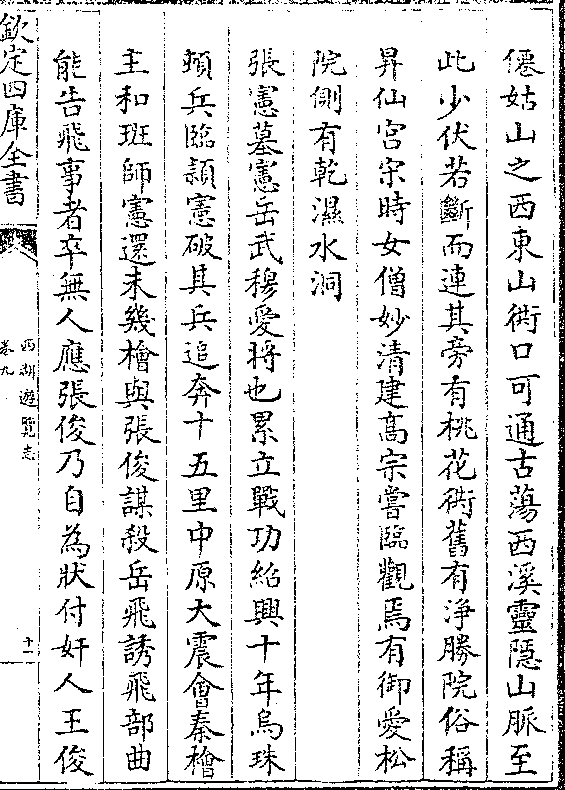 僊姑山之西東山衖口可通古蕩西溪靈隱山脈至
此少伏若斷而連其旁有桃花衖舊有淨勝院俗稱
昇仙宫宋時女僧妙清建髙宗嘗臨觀焉有御愛松
院側有乾濕水洞
張憲墓憲岳武穆愛將也累立戰功紹興十年烏珠
頓兵臨潁憲破其兵追奔十五里中原大震會秦檜
主和班師憲還未幾檜與張俊謀殺岳飛誘飛部曲
能告飛事者卒無人應張俊乃自為狀付奸人王俊
欽定四庫全書
西湖遊覽志
卷九
十一